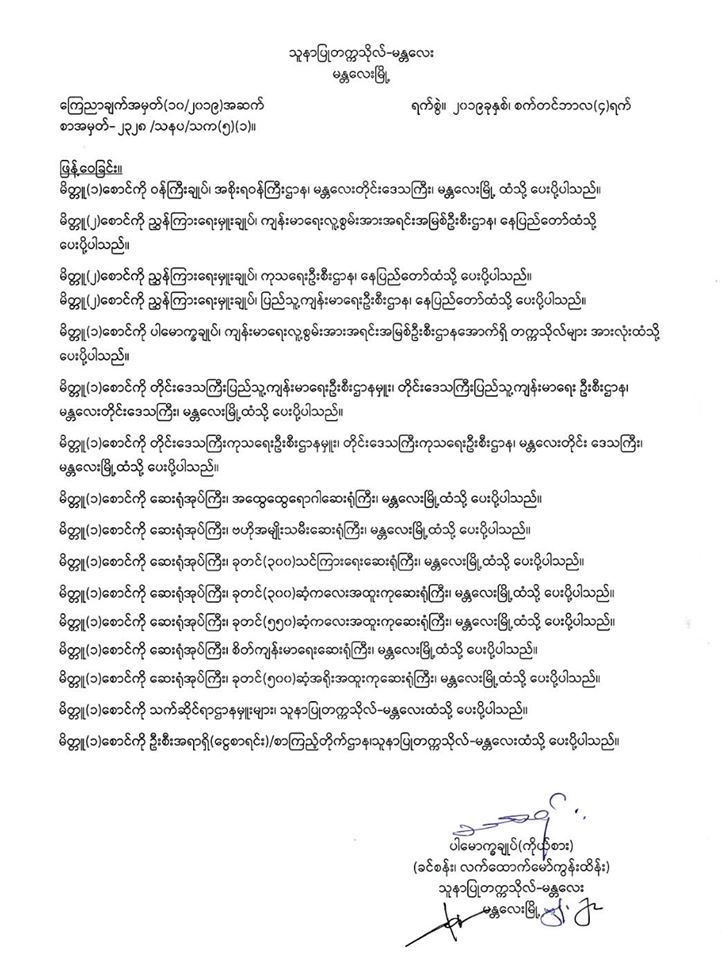 သူနာပြုတက္ကသိုလ်-မန္တလေး
မန္တလေးမြို့
ကြေညာချက်အမှတ်(၁၀/၂၀၁၉)အဆက် ရက်စွဲ။ ၂၀၁၉ခုနှစ်၊ စက်တင်ဘာလ(၄)ရက်
စာအမှတ်- ၂၃၂၈ /သနပ/သက(၅)(၁)။
ဖြန့်ဝေခြင်း။
မိတ္တူ(၁)စောင်ကို ဝန်ကြီးချုပ်၊ အစိုးရဝန်ကြီးဌာန၊ မန္တလေးတိုင်းဒေသကြီး၊ မန္တလေးမြို့ ထံသို့ ပေးပို့ပါသည်။
မိတ္တူ(၂)စောင်ကို ညွှန်ကြားရေးမှူးချုပ်၊ ကျန်းမာရေးလူ့စွမ်းအားအရင်းအမြစ်ဦးစီးဌာန၊ နေပြည်တော်ထံသို့
ပေးပို့ပါသည်။
မိတ္တူ(၂)စောင်ကို ညွှန်ကြားရေးမှူးချုပ်၊ ကုသရေးဦးစီးဌာန၊ နေပြည်တော်ထံသို့ ပေးပို့ပါသည်။
မိတ္တူ(၂)စောင်ကို ညွှန်ကြားရေးမှူးချုပ်၊ ပြည်သူ့ကျန်းမာရေးဦးစီးဌာန၊ နေပြည်တော်ထံသို့ ပေးပို့ပါသည်။
မိတ္တူ(၁)စောင်ကို ပါမောက္ခချုပ်၊ ကျန်းမာရေးလူ့စွမ်းအားအရင်းအမြစ်ဦးစီးဌာနအောက်ရှိ တက္ကသိုလ်များ အားလုံးထံသို့
ပေးပို့ပါသည်။
မိတ္တူ(၁)စောင်ကို တိုင်းဒေသကြီးပြည်သူ့ကျန်းမာရေးဦးစီးဌာနမှူး၊ တိုင်းဒေသကြီးပြည်သူ့ကျန်းမာရေး ဦးစီးဌာန၊
မန္တလေးတိုင်းဒေသကြီး၊ မန္တလေးမြို့ထံသို့ ပေးပို့ပါသည်။
မိတ္တူ(၁)စောင်ကို တိုင်းဒေသကြီးကုသရေးဦးစီးဌာနမှူး၊ တိုင်းဒေသကြီးကုသရေးဦးစီးဌာန၊ မန္တလေးတိုင်း ဒေသကြီး၊
မန္တလေးမြို့ထံသို့ ပေးပို့ပါသည်။
မိတ္တူ(၁)စောင်ကို ဆေးရုံအုပ်ကြီး၊ အထွေထွေရောဂါဆေးရုံကြီး၊ မန္တလေးမြို့ထံသို့ ပေးပို့ပါသည်။
မိတ္တူ(၁)စောင်ကို ဆေးရုံအုပ်ကြီး၊ ဗဟိုအမျိုးသမီးဆေးရုံကြီး၊ မန္တလေးမြို့ထံသို့ ပေးပို့ပါသည်။
မိတ္တူ(၁)စောင်ကို ဆေးရုံအုပ်ကြီး၊ ခုတင်(၃၀၀)သင်ကြားရေးဆေးရုံကြီး၊ မန္တလေးမြို့ထံသို့ ပေးပို့ပါသည်။
မိတ္တူ(၁)စောင်ကို ဆေးရုံအုပ်ကြီး၊ ခုတင်(၃၀၀)ဆံ့ကလေးအထူးကုဆေးရုံကြီး၊ မန္တလေးမြို့ထံသို့ ပေးပို့ပါသည်။
မိတ္တူ(၁)စောင်ကို ဆေးရုံအုပ်ကြီး၊ ခုတင်(၅၅၀)ဆံ့ကလေးအထူးကုဆေးရုံကြီး၊ မန္တလေးမြို့ထံသို့ ပေးပို့ပါသည်။
မိတ္တူ(၁)စောင်ကို ဆေးရုံအုပ်ကြီး၊ စိတ်ကျန်းမာရေးဆေးရုံကြီး၊ မန္တလေးမြို့ထံသို့ ပေးပို့ပါသည်။
မိတ္တူ(၁)စောင်ကို ဆေးရုံအုပ်ကြီး၊ ခုတင်(၅၀၀)ဆံ့အရိုးအထူးကုဆေးရုံကြီး၊ မန္တလေးမြို့ထံသို့ ပေးပို့ပါသည်။
မိတ္တူ(၁)စောင်ကို သက်ဆိုင်ရာဌာနမှူးများ၊ သူနာပြုတက္ကသိုလ်-မန္တလေးထံသို့ ပေးပို့ပါသည်။
မိတ္တူ(၁)စောင်ကို ဦးစီးအရာရှိ(ငွေစာရင်း)/စာကြည့်တိုက်ဌာန၊သူနာပြုတက္ကသိုလ်-မန္တလေးထံသို့ ပေးပို့ပါသည်။
ပါမောက္ခချုပ်(ကိုယ်စား)
(ခင်စန်း၊ လက်ထောက်မော်ကွန်းထိန်း)
သူနာပြုတက္ကသိုလ်-မန္တလေး
မန္တလေးမြို့